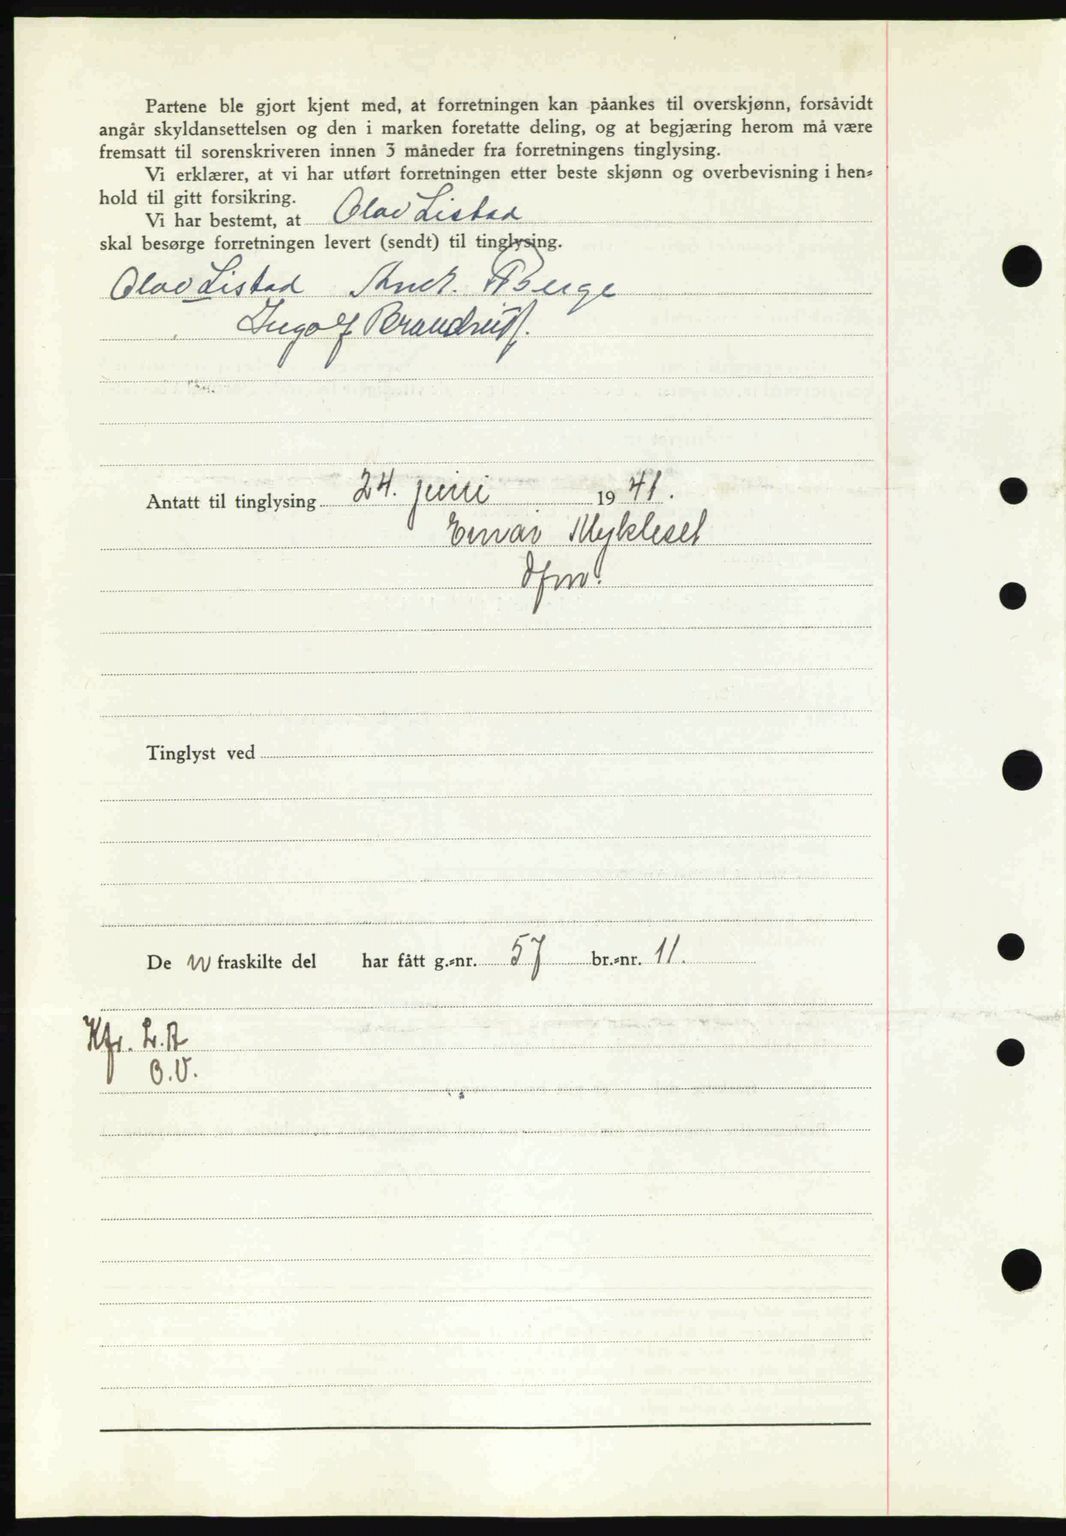 Partene ble gjort kjent med, at forretningen kan påankes til overskjønn, forsåvidt
angår skyldansettelsen og den i marken foretatte deling, og at begjæring herom må være
fremsatt til sorenskriveren innen 3 måneder fra forretningens tinglysing.
Vi erklærer, at vi har utført forretningen etter beste skjønn og overbevisning i hen-
hold til gitt forsikring.
Vi har bestemt, at Olav Listad
skal besørge forretningen levert (sendt) til tinglysing.
Olav Listad Andr. Berge
Ingolf
Antatt til tinglysing 24. juni 1941.
Einar Mykleset
dfm.
Tinglyst ved
De fraskilte del har fått g.-nr. 57 br.-nr. 11.
Kfr. L.R
B.V.